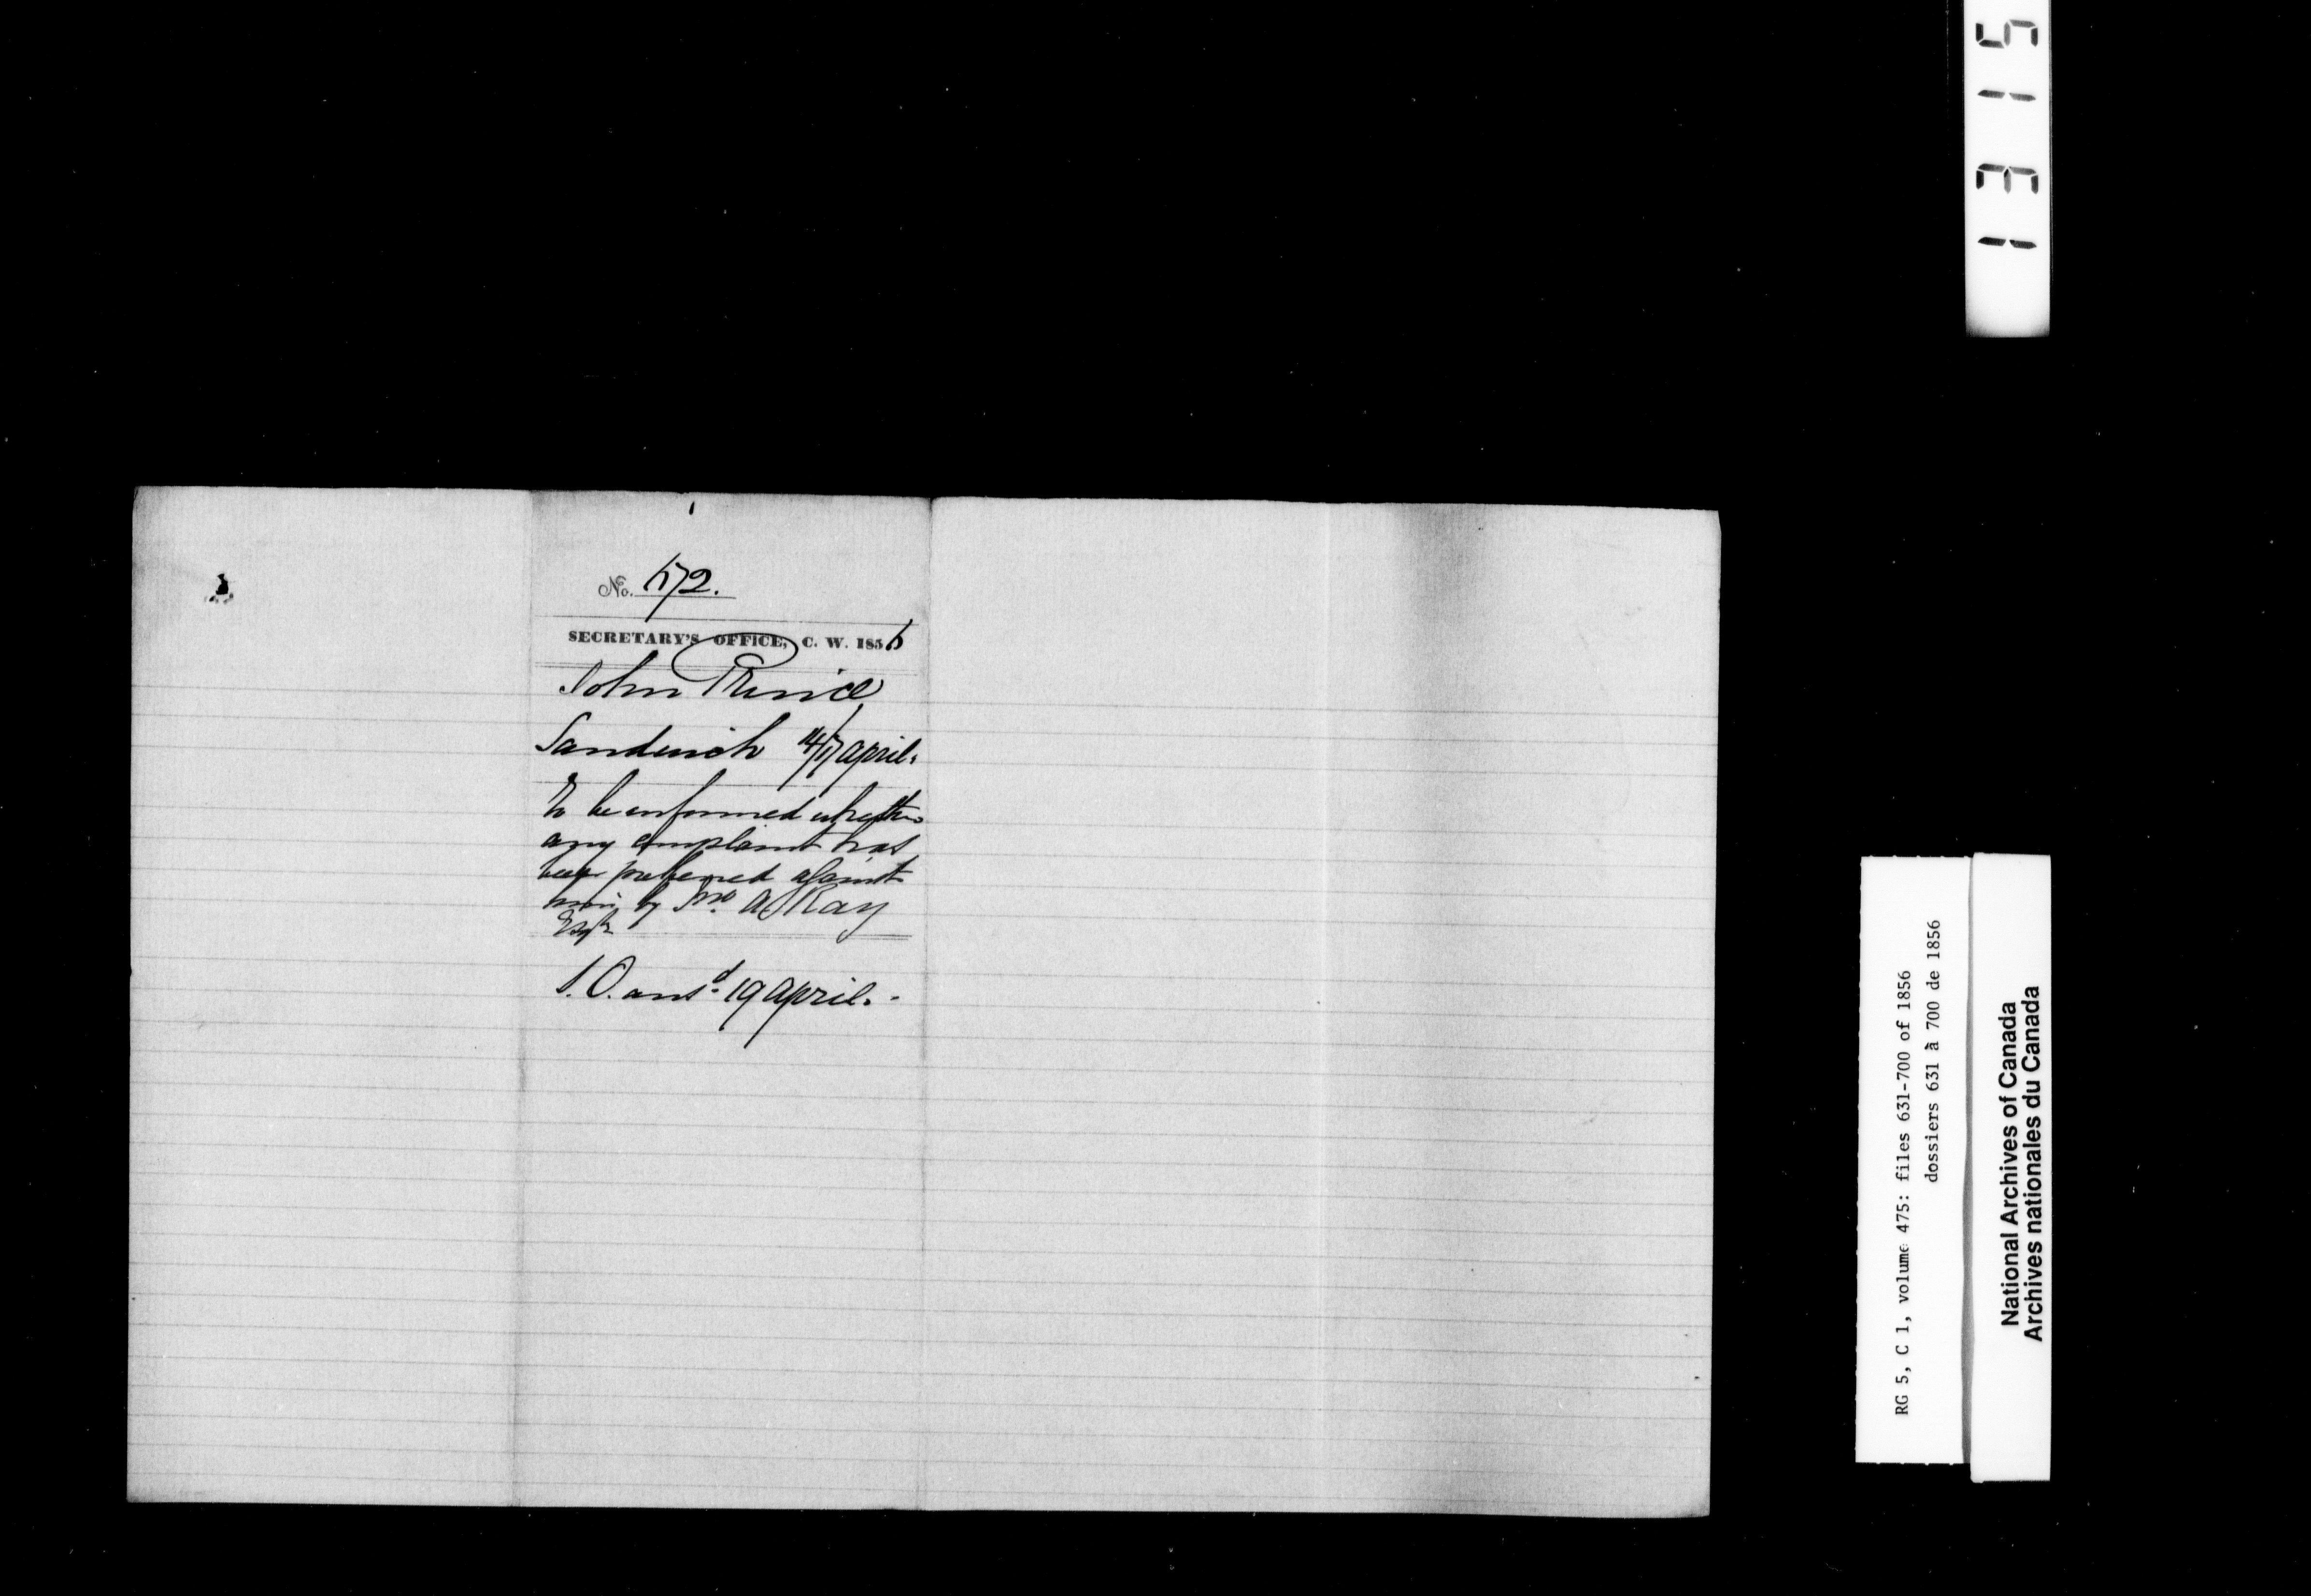 No. 672.
SECRETARY'S OFFICE, C. W. 1856
John Prince
Sandwich 14/17 April.
To be informed whether
any complaint has
been preferred against
him by Jno. A. Kay
Esqr
S.O. ansd. 19 April. -
1315
RG 5, C 1, volume 475: files 631-700 of 1856
dossiers 631 à 700 de 1856
National Archives of Canada
Archives nationales du Canada